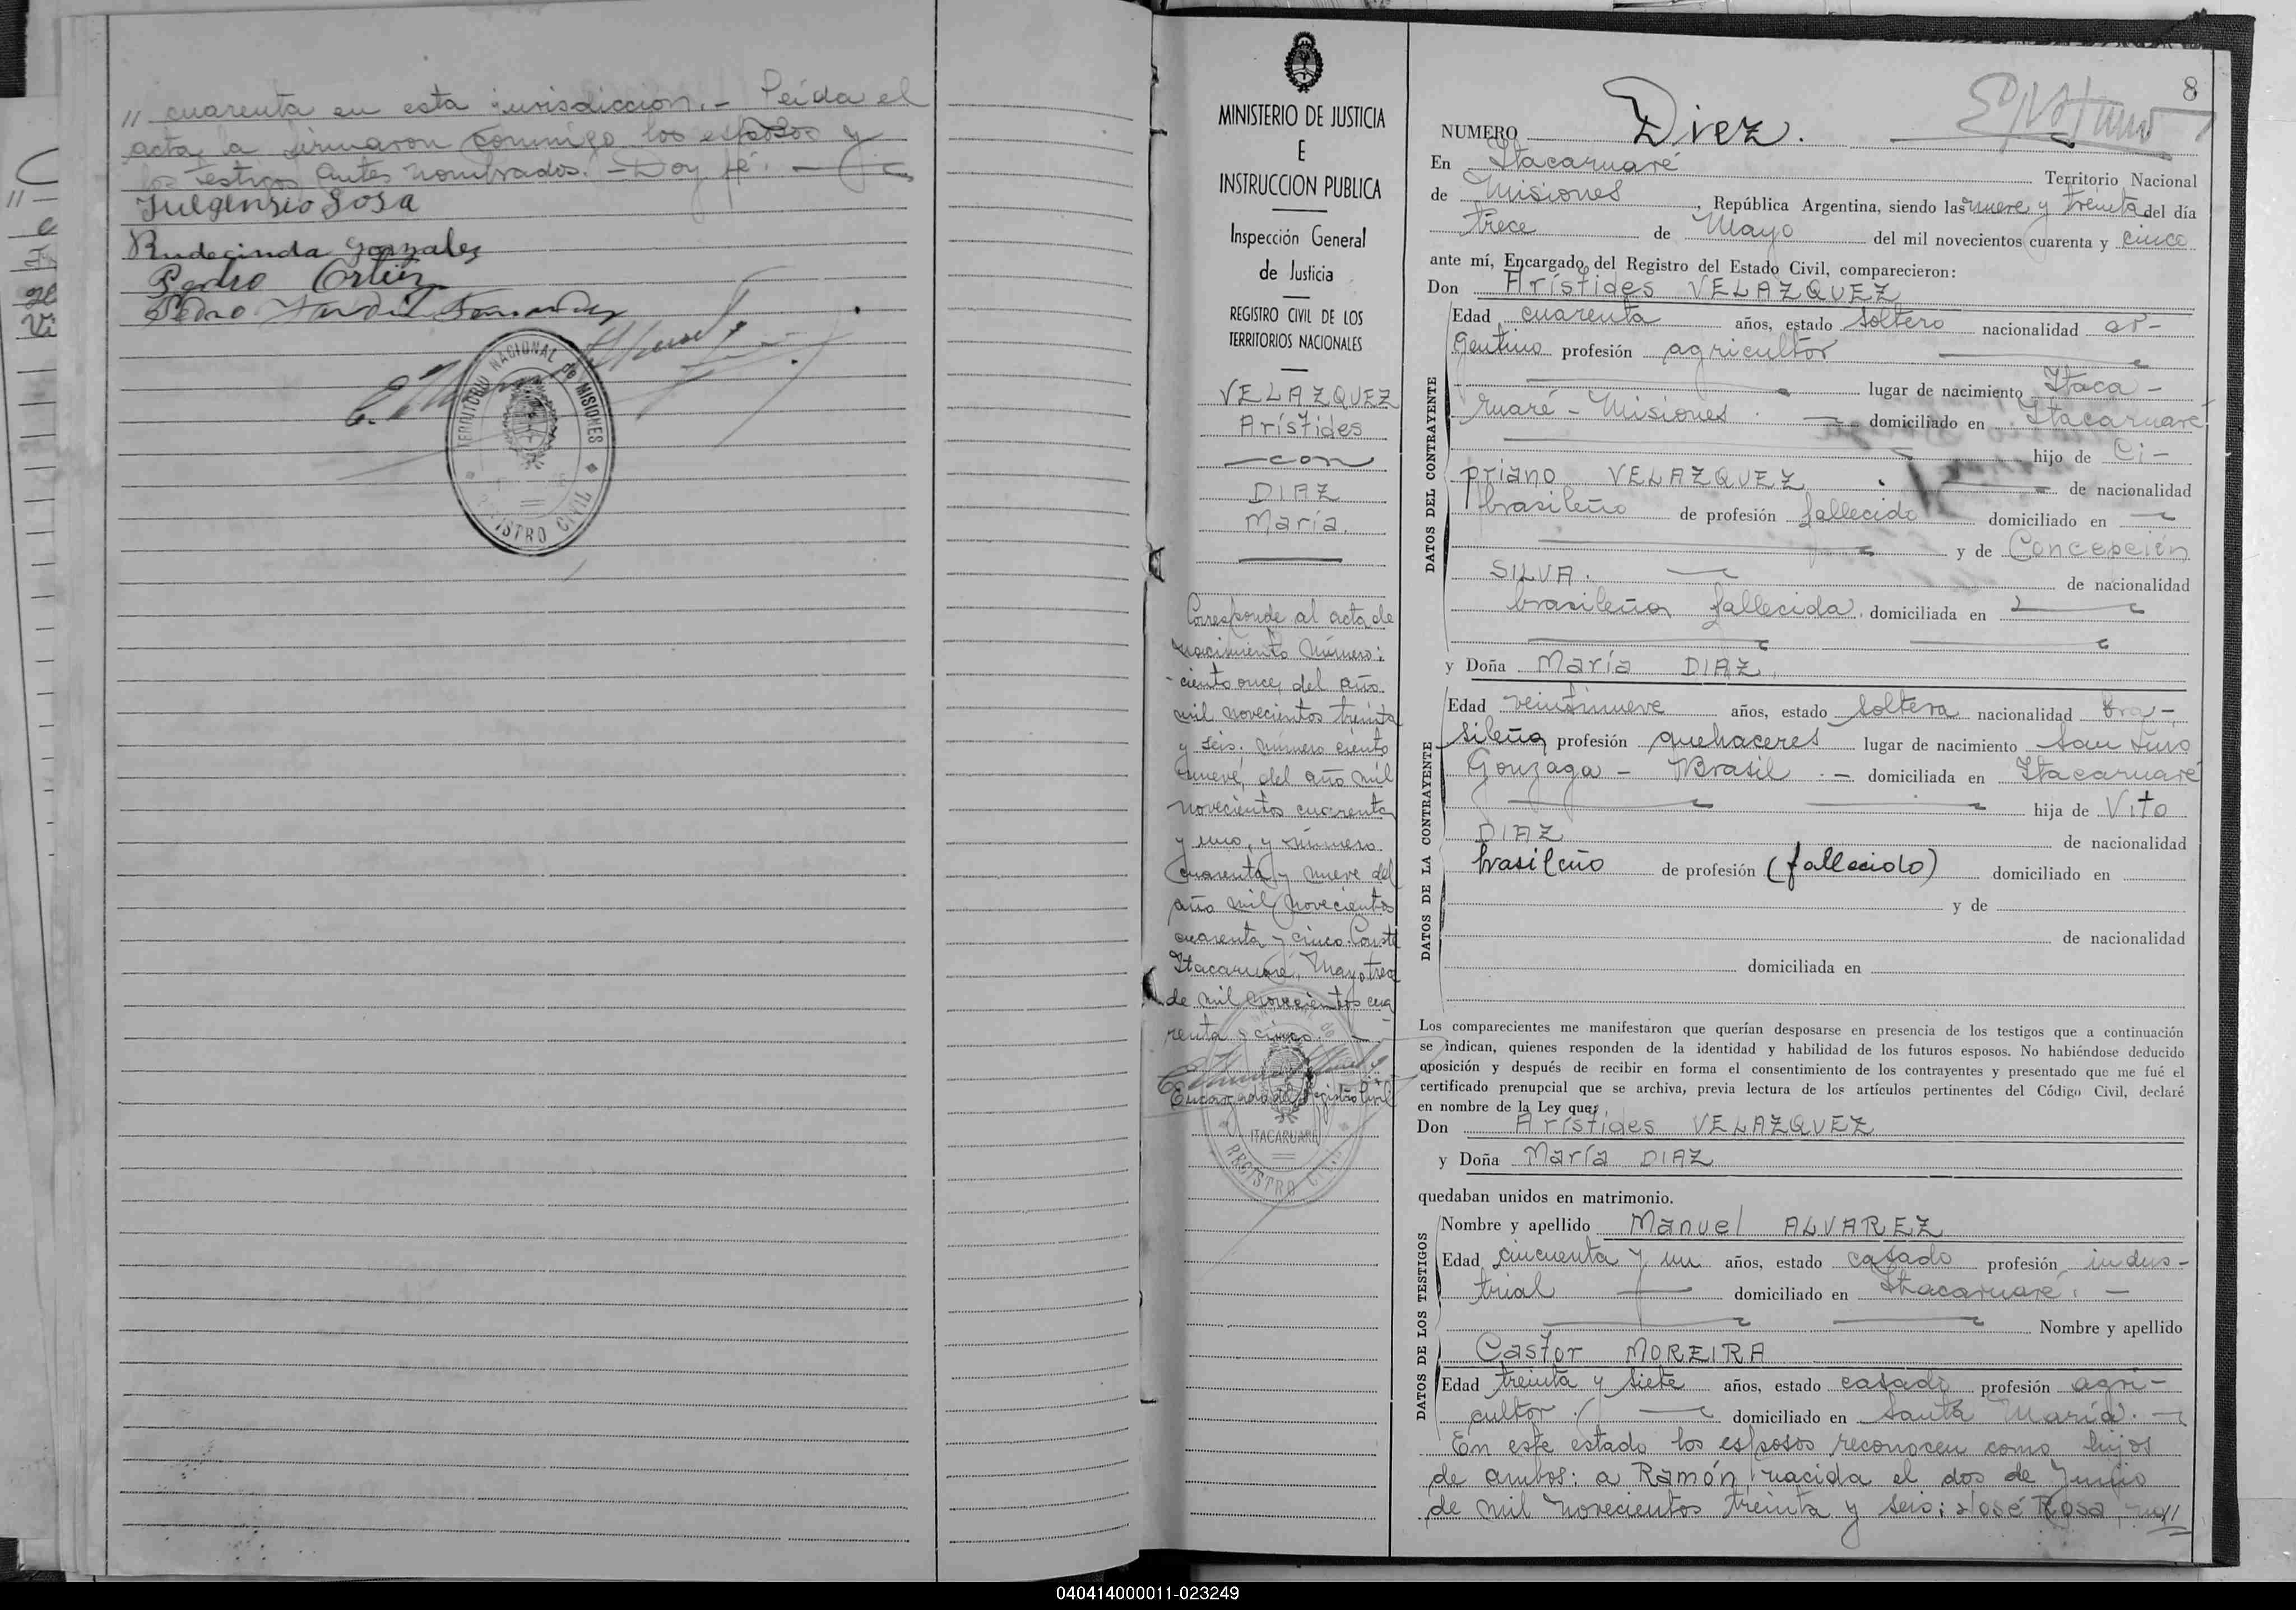 // cuarenta en esta jurisdiccion.- Leída el
acta, la firmaron conmigo los esposos y
los testigos antes nombrados.- Doy fé.
Fulgensio Sosa
Rudecinda Gonzalez
Pedro Ortiz
Pedro
TERRITORIO NACIONAL de MISIONES
REGISTRO CIVIL
MINISTERIO DE JUSTICIA
E
INSTRUCCION PUBLICA
Inspección General
de Justicia
REGISTRO CIVIL DE LOS
TERRITORIOS NACIONALES
VELAZQUEZ
Arístides
con
DIAZ
María.
Corresponde al acta de
nacimiento número:
ciento once, del año
mil novecientos treinta
y seis. número ciento
nueve, del año mil
novecientos cuarenta
y uno, y número
cuarenta y nueve del
año mil novecientos
cuarenta y cinco. Conste
Itacaruaré, Mayo trece
de mil novecientos cua
renta y cinco.
Encargado del Registro Civil
ITACARUARE
REGISTRO CIVIL
8
NUMERO Diez.
En Itacaruaré Territorio Nacional
de Misiones, República Argentina, siendo las nueve y treinta del día
trece de Mayo del mil novecientos cuarenta y cinco
ante mí, Encargado del Registro del Estado Civil, comparecieron:
Don Arístides VELAZQUEZ
DATOS DEL CONTRAYENTE
Edad cuarenta años, estado soltero nacionalidad ar-
gentino profesión agricultor
lugar de nacimiento Itaca-
ruaré - Misiones. domiciliado en Itacaruaré
hijo de Ci-
priano VELAZQUEZ de nacionalidad
brasileño de profesión fallecido domiciliado en
y de Concepción
SILVA. de nacionalidad
brasileña fallecida. domiciliada en
y Doña María DIAZ.
DATOS DE LA CONTRAYENTE
Edad veintinueve años, estado soltera nacionalidad bra-
sileña profesión quehaceres lugar de nacimiento San Luis
Gonzaga - Brasil.- domiciliada en Itacaruaré
hija de Vito
DIAZ de nacionalidad
brasileño de profesión (fallecido) domiciliado en
y de
de nacionalidad
domiciliada en
Los comparecientes me manifestaron que querían desposarse en presencia de los testigos que a continuación
se indican, quienes responden de la identidad y habilidad de los futuros esposos. No habiéndose deducido
oposición y después de recibir en forma el consentimiento de los contrayentes y presentado que me fué el
certificado prenupcial que se archiva, previa lectura de los artículos pertinentes del Código Civil, declaré
en nombre de la Ley que:
Don Arístides VELAZQUEZ
y Doña María DIAZ
quedaban unidos en matrimonio.
DATOS DE LOS TESTIGOS
Nombre y apellido Manuel ALVAREZ
Edad cincuenta y un años, estado casado profesión indus-
trial domiciliado en Itacaruaré. -
Nombre y apellido
Castor MOREIRA
Edad treinta y siete años, estado casado profesión agri-
cultor. domiciliado en Santa María.
En este estado los esposos reconocen como hijos
de ambos: a Ramón, nacida el dos de Junio
de mil novecientos treinta y seis; José Rosa, na//
040414000011-023249